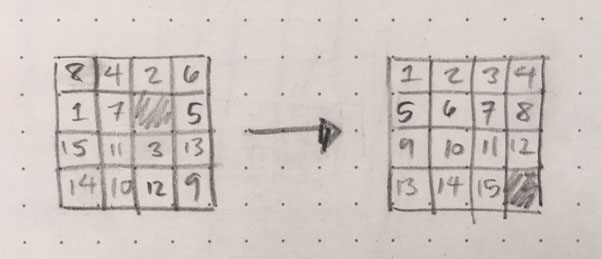 8 4 2 6
1 7 5
15 11 3 13
14 10 12 9
1 2 3 4
5 6 7 8
9 10 11 12
13 14 15